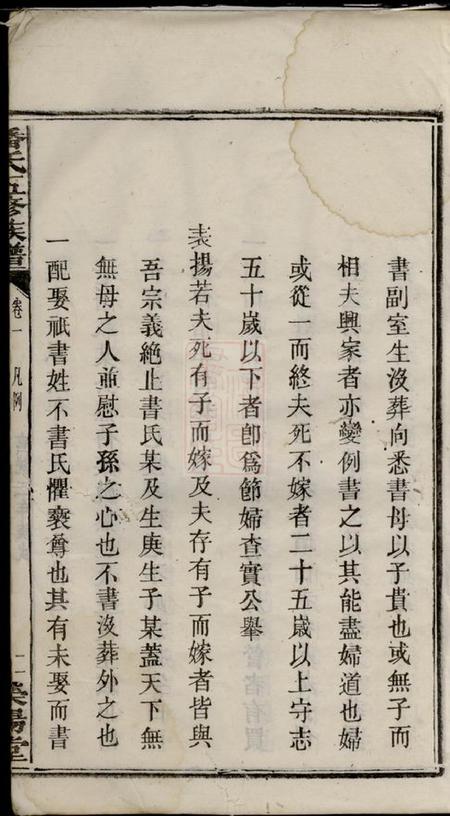 書副室生沒葬向悉書母以子貴也或無子而
相夫興家者亦變例書之以其能盡婦道也婦
或從一而終夫死不嫁者二十五歲以上守志
五十歲以下者卽爲節婦查實公舉
表揚若夫死有子而嫁及夫存有子而嫁者皆與
吾宗義絶止書氏某及生庚生子某蓋天下無
無母之人並慰子孫之心也不書沒葬外之也
一配娶祇書姓不書氏懼褻尊也其有未娶而書
潘氏五修族譜
卷一 凡例
二
榮陽堂